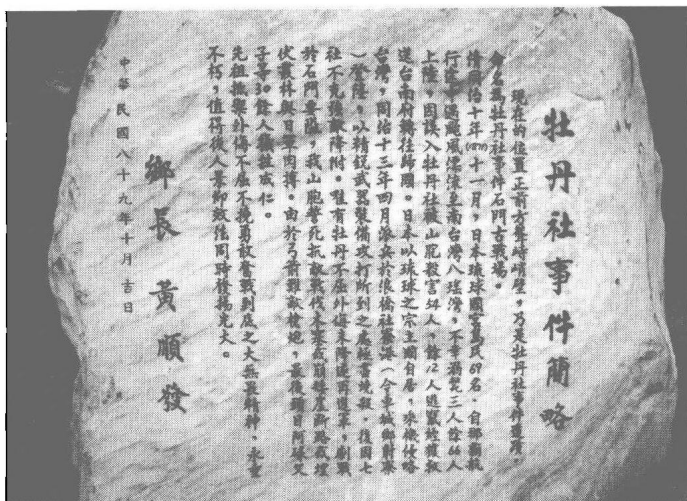 牡丹社事件簡略
現在的位置正前方聳峙峭壁，乃是牡丹社事件遺瀆，
命名為牡丹社事件石門古戰場。
清同治十年(1871)十一月，日本琉球國宮島民69名，自那霸航
行途中遇颱風漂流至南台灣八瑤灣，不幸溺斃三人餘66人
上陸，因誤入牡丹社被山胞殺害54人，餘12人逃竄經獲救
送台南府轉往歸國。日本以琉球之宗主國自居，乘機侵略
台灣，同治十三年四月派兵於浪嶠社寮港（今車城鄉射寮
）登陸，以精銳武器裝備攻打所到之處極當境毀，復因七
社不克強敵降附。惟有牡丹不屈外侮未降遂再進軍，劇戰
於石門要隘，我山胞誓死抗敵戰伐木塞或崩懸崖斷路或埋
伏叢林與日軍肉搏。由於弓箭難敵槍炮，最後頭目阿祿父
子等30餘人犧牲成仁。
先祖抵禦外侮不屈不撓勇敢奮戰到底之大無畏精神，永垂
不朽，值得後人景仰致佳同時發揚光大。
鄉長 黃順發
中華民國八十九年十月 吉日